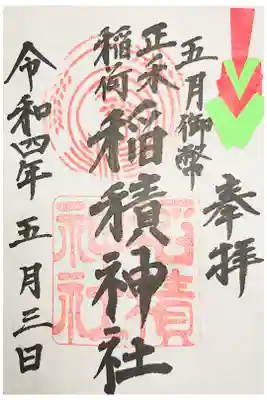 奉拝
五月御幣
正ノ木
稲荷
稲積神社
令和四年 五月三日
稲積
神社